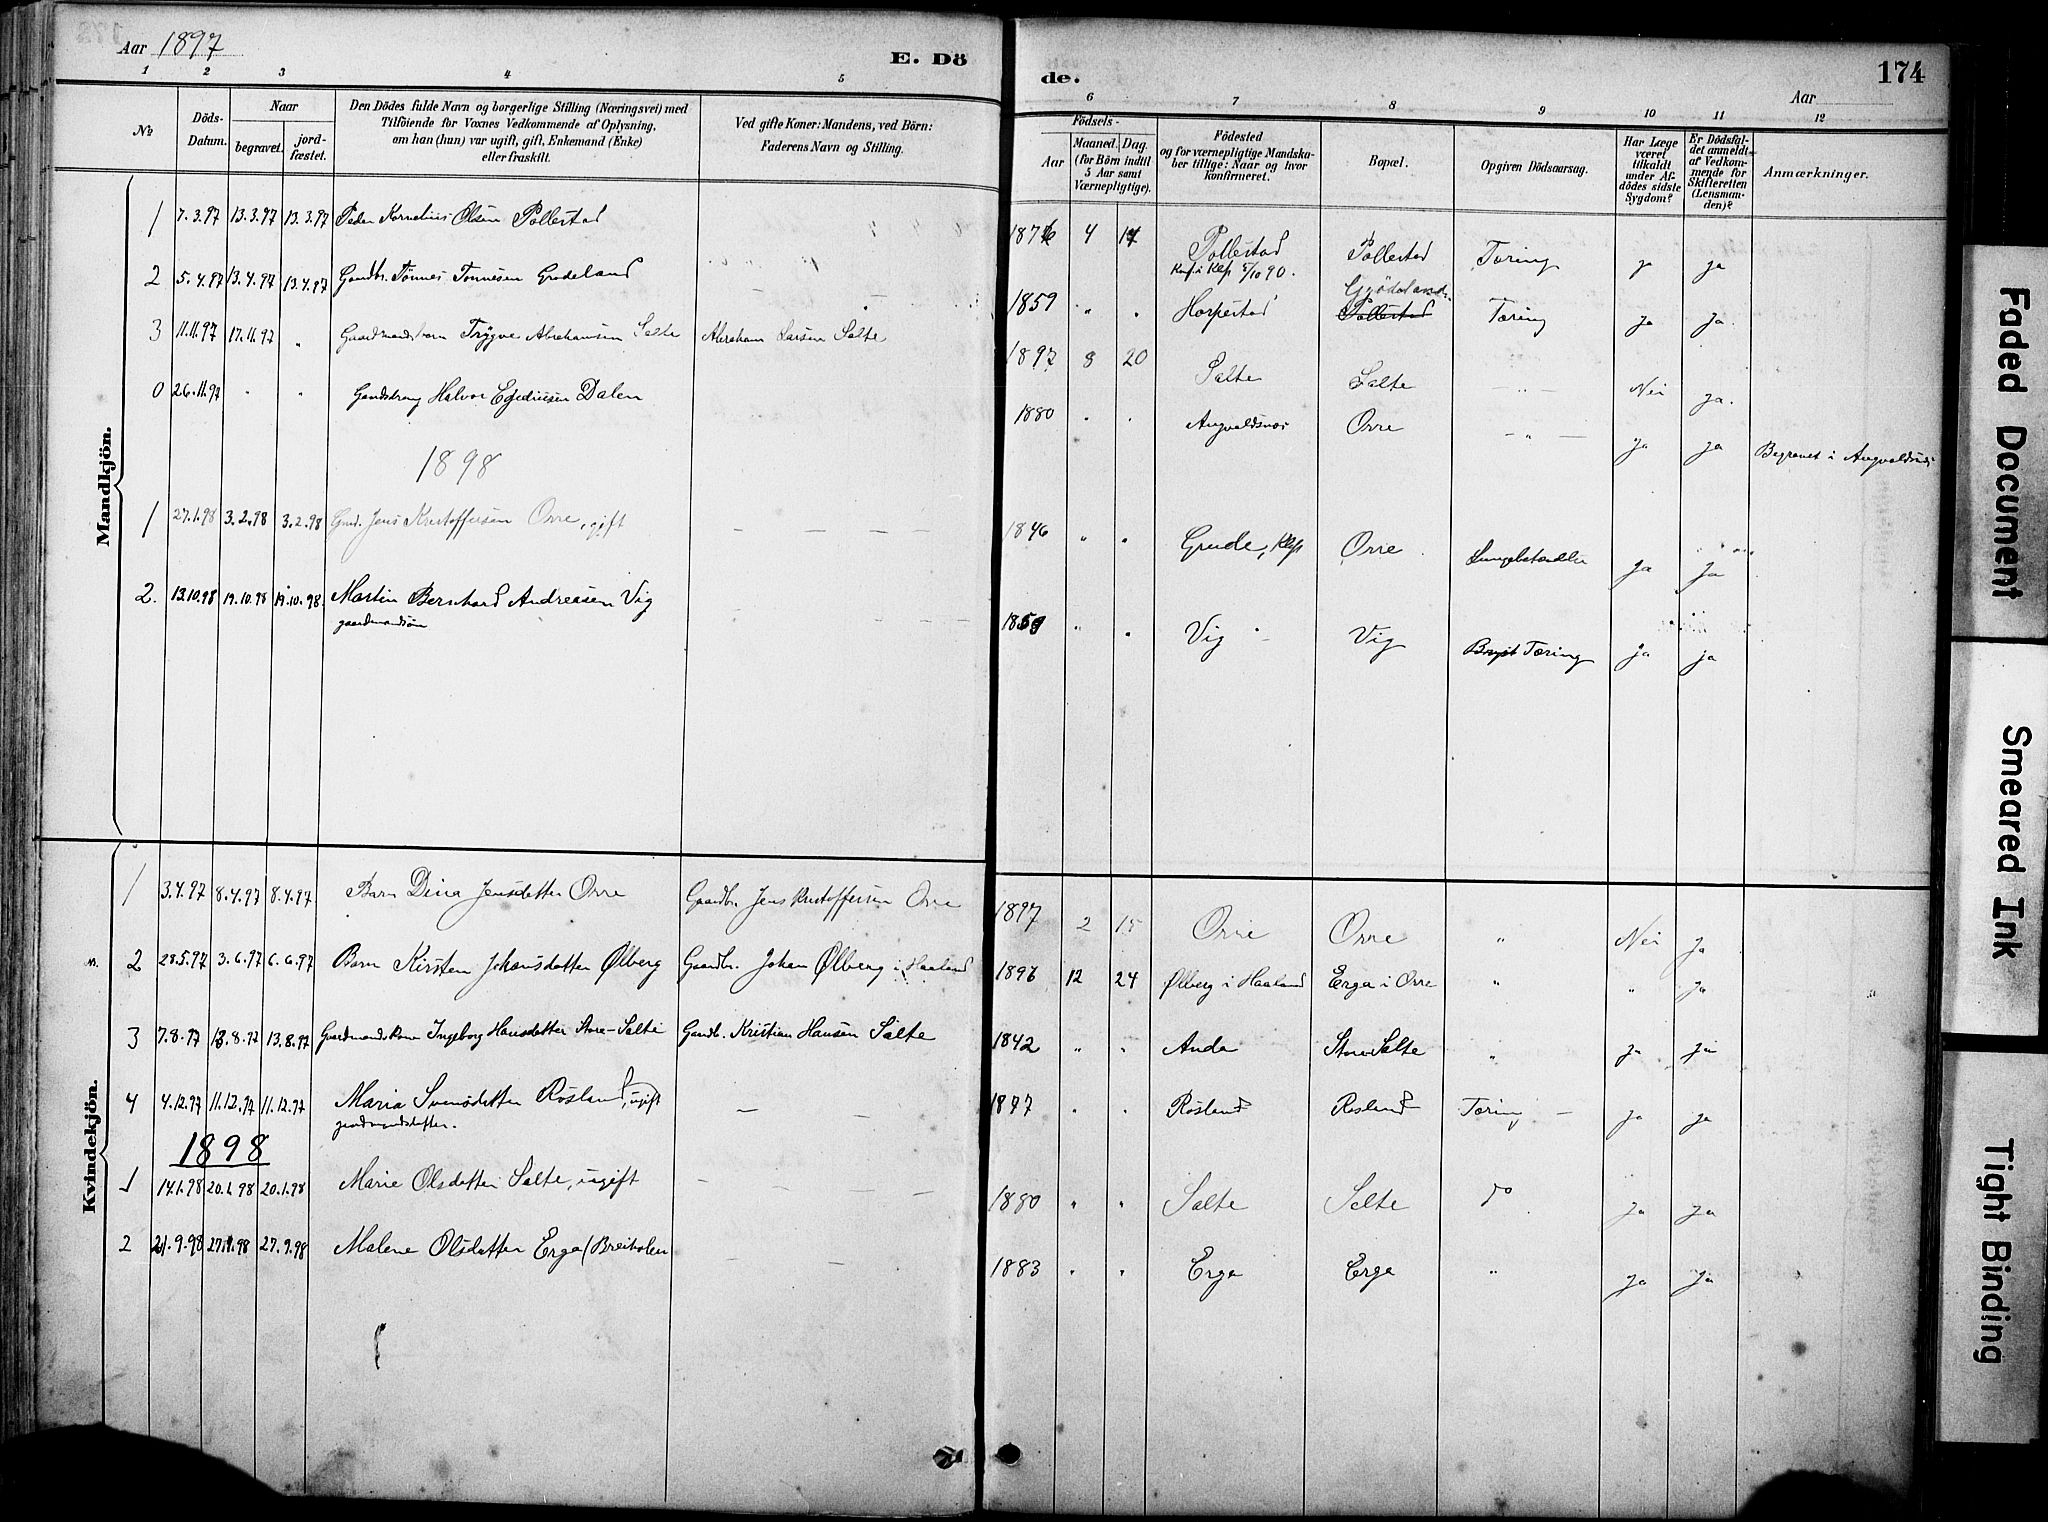 Aar 1897
E. Dö
de.
174
Aar
1 2 3 4 5 6 7 8 9 10 11 12
№
Döds-Datum.
Naar
begravet.
jord-fæstet.
Den Dödes fulde Navn og borgerlige Stilling (Næringsvei) med
Tilföiende for Voxnes Vedkommende af Oplysning,
om han (hun) var ugift, gift, Enkemand (Enke)
eller fraskilt.
Ved gifte Koner: Mandens, ved Börn:
Faderens Navn og Stilling.
Födsels-
Aar
Maaned. Dag.
(for Börn indtil
5 Aar samt
Værnepligtige).
Födested
og for værnepligtige Mandska-
ber tillige: Naar og hvor
konfirmeret.
Bopæl.
Opgiven Dödsaarsag.
Har Læge
været
tilkaldt
under Af-
dödes sidste
Sygdom?
Er Dödsfal-
det anmeldt
af Vedkom-
mende for
Skifteretten
(Lensman-
den)?
Anmærkninger.
Mandkjön.
1 7.3.97 13.3.97 13.3.97 Peder Kornelius Olsen Pollestad 1876 4 14 Pollestad Pollestad Tæring ja ja
Konf. i Klep 5/10 90.
2 5.4.97 13.4.97 13.4.97 Gaardbr. Tönnes Tonnesen Grødeland 1859 " " Horpestad Grödeland Pollestad Tæring ja ja
3 11.11.97 17.11.97 " Gaardmandsbarn Trygve Abrahamsen Salte Abraham Larsen Salte 1897 8 20 Salte Salte - " - Nei ja.
0 26.11.97 " " Gaardsdreng Halvor Egediusen Dalen 1880 " " Augvaldsnæs Orre - " - ja ja Begravet i Augvaldsnæs
1898
1 27.1.98 3.2.98 3.2.98 Gmd. Jens Kristoffersen Orre, gift - - - 1846 " " Grude, Klep Orre Lungebetændelse ja ja
2. 13.10.98 19.10.98 19.10.98. Martin Bernhard Andreasen Vig - - - 1859 " " Vig Vig Bryst Tæring ja ja
gaardmandssøn
Kvindekjön.
1 3.4.97 8.4.97 8.4.97 Barn Dina Jensdatter Orre Gaardbr. Jens Kristoffersen Orre 1897 2 15 Orre Orre " Nei ja
2 28.5.97 3.6.97 6.6.97 Barn Kirsten Johansdatter Ølberg Gaardbr. Johan Ølberg i Haaland 1896 12 24 Ølberg i Haaland Erga i Orre " " ja
3 7.8.97 13.8.97 13.8.97 Gaardmandskone Ingeborg Hansdatter Store-Salte Gaardb. Kristian Hansen Salte 1842 " " Anda Store Salte " ja ja
4 4.12.97 11.12.97 11.12.97 Maria Svensdatter Rosland, ugift - - 1877 " " Rosland Rosland Tæring - ja ja
gaardmandsdatter.
1898
1 14.1.98 20.1.98 20.1.98 Marie Olsdatter Salte, ugift - - - - 1880 " " Salte Salte do ja ja
2 21.9.98 27.9.98 27.9.98 Malene Olsdatter Erga (Breiholen - - 1883 " " Erga Erga " ja ja
Faded Document
Smeared Ink
Tight Binding